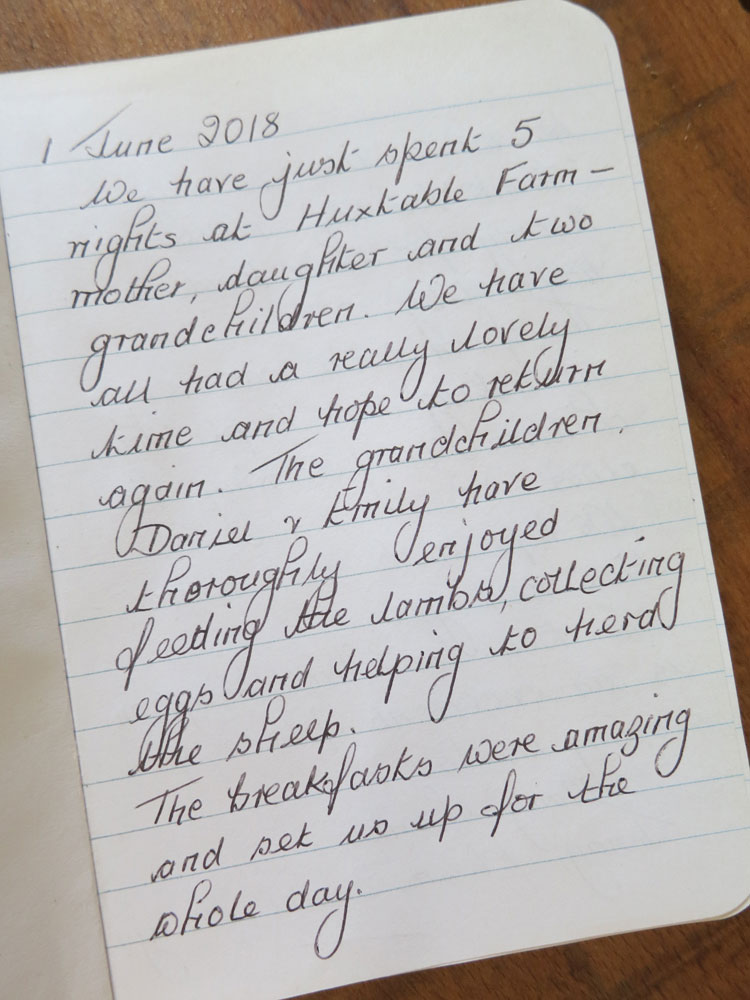 1 June 2018
We have just spent 5
nights at Huxtable Farm –
mother, daughter and two
grandchildren. We have
all had a really lovely
time and hope to return
again. The grandchildren,
Daniel & Emily have
thoroughly enjoyed
feeding the lambs, collecting
eggs and helping to herd
the sheep.
The breakfasts were amazing
and set us up for the
whole day.